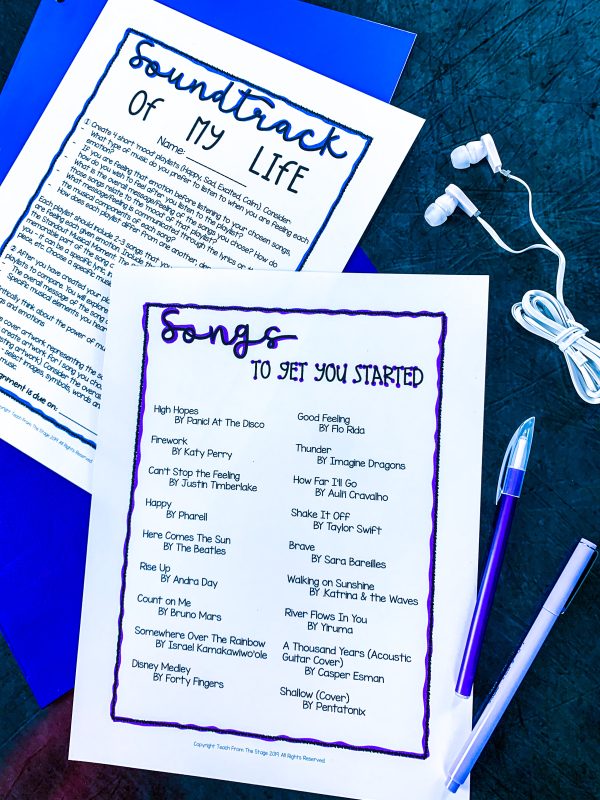 Soundtrack
Of My Life
Name:
1. Create 4 short 'mood' playlists (Happy, Sad, Excited, Calm). Consider:
- What type of music do you prefer to listen to when you are feeling each
emotion?
- If you are feeling that emotion before listening to your chosen songs,
how do you wish to feel after you listen to the playlist?
- What is the overall message/feeling of the songs you chose? How do
those songs relate to the mood of that playlist?
- What message/feeling is communicated through the lyrics or
the musical components of each song?
- How does each playlist differ from one another
Each playlist should include 2-3 songs that
are feeling each emotion. Include the
The Standout Musical Moment
memorable part of the song
you - it can be a specific lyric, in
piece, etc. Choose a specific
2. After you have created your
playlists to compare. You will explore
- The overall message of the song
Specific musical elements you hear
critically think about the power of
and emotions.
cover artwork representing the
create artwork for 1 song you
existing artwork) Consider the overall
select images, symbols, words an
music.
assignment is due on:
Copyright Teach From The Stage 2019. All Rights Reserved
Songs
TO GET YOU STARTED
High Hopes
BY Panic! At The Disco
Firework
BY Katy Perry
Can't Stop the Feeling
BY Justin Timberlake
Happy
BY Pharell
Here Comes The Sun
BY The Beatles
Rise Up
BY Andra Day
Count on Me
BY Bruno Mars
Somewhere Over The Rainbow
BY Israel Kamakawiwo'ole
Disney Medley
BY Forty Fingers
Good Feeling
BY Flo Rida
Thunder
BY Imagine Dragons
How Far I'll Go
BY Auli'i Cravalho
Shake It Off
BY Taylor Swift
Brave
BY Sara Bareilles
Walking on Sunshine
BY .Katrina & the Waves
River Flows In You
BY Yiruma
A Thousand Years (Acoustic
Guitar Cover)
BY Casper Esman
Shallow (Cover)
BY Pentatonix
Copyright Teach From The Stage 2019. All Rights Reserved